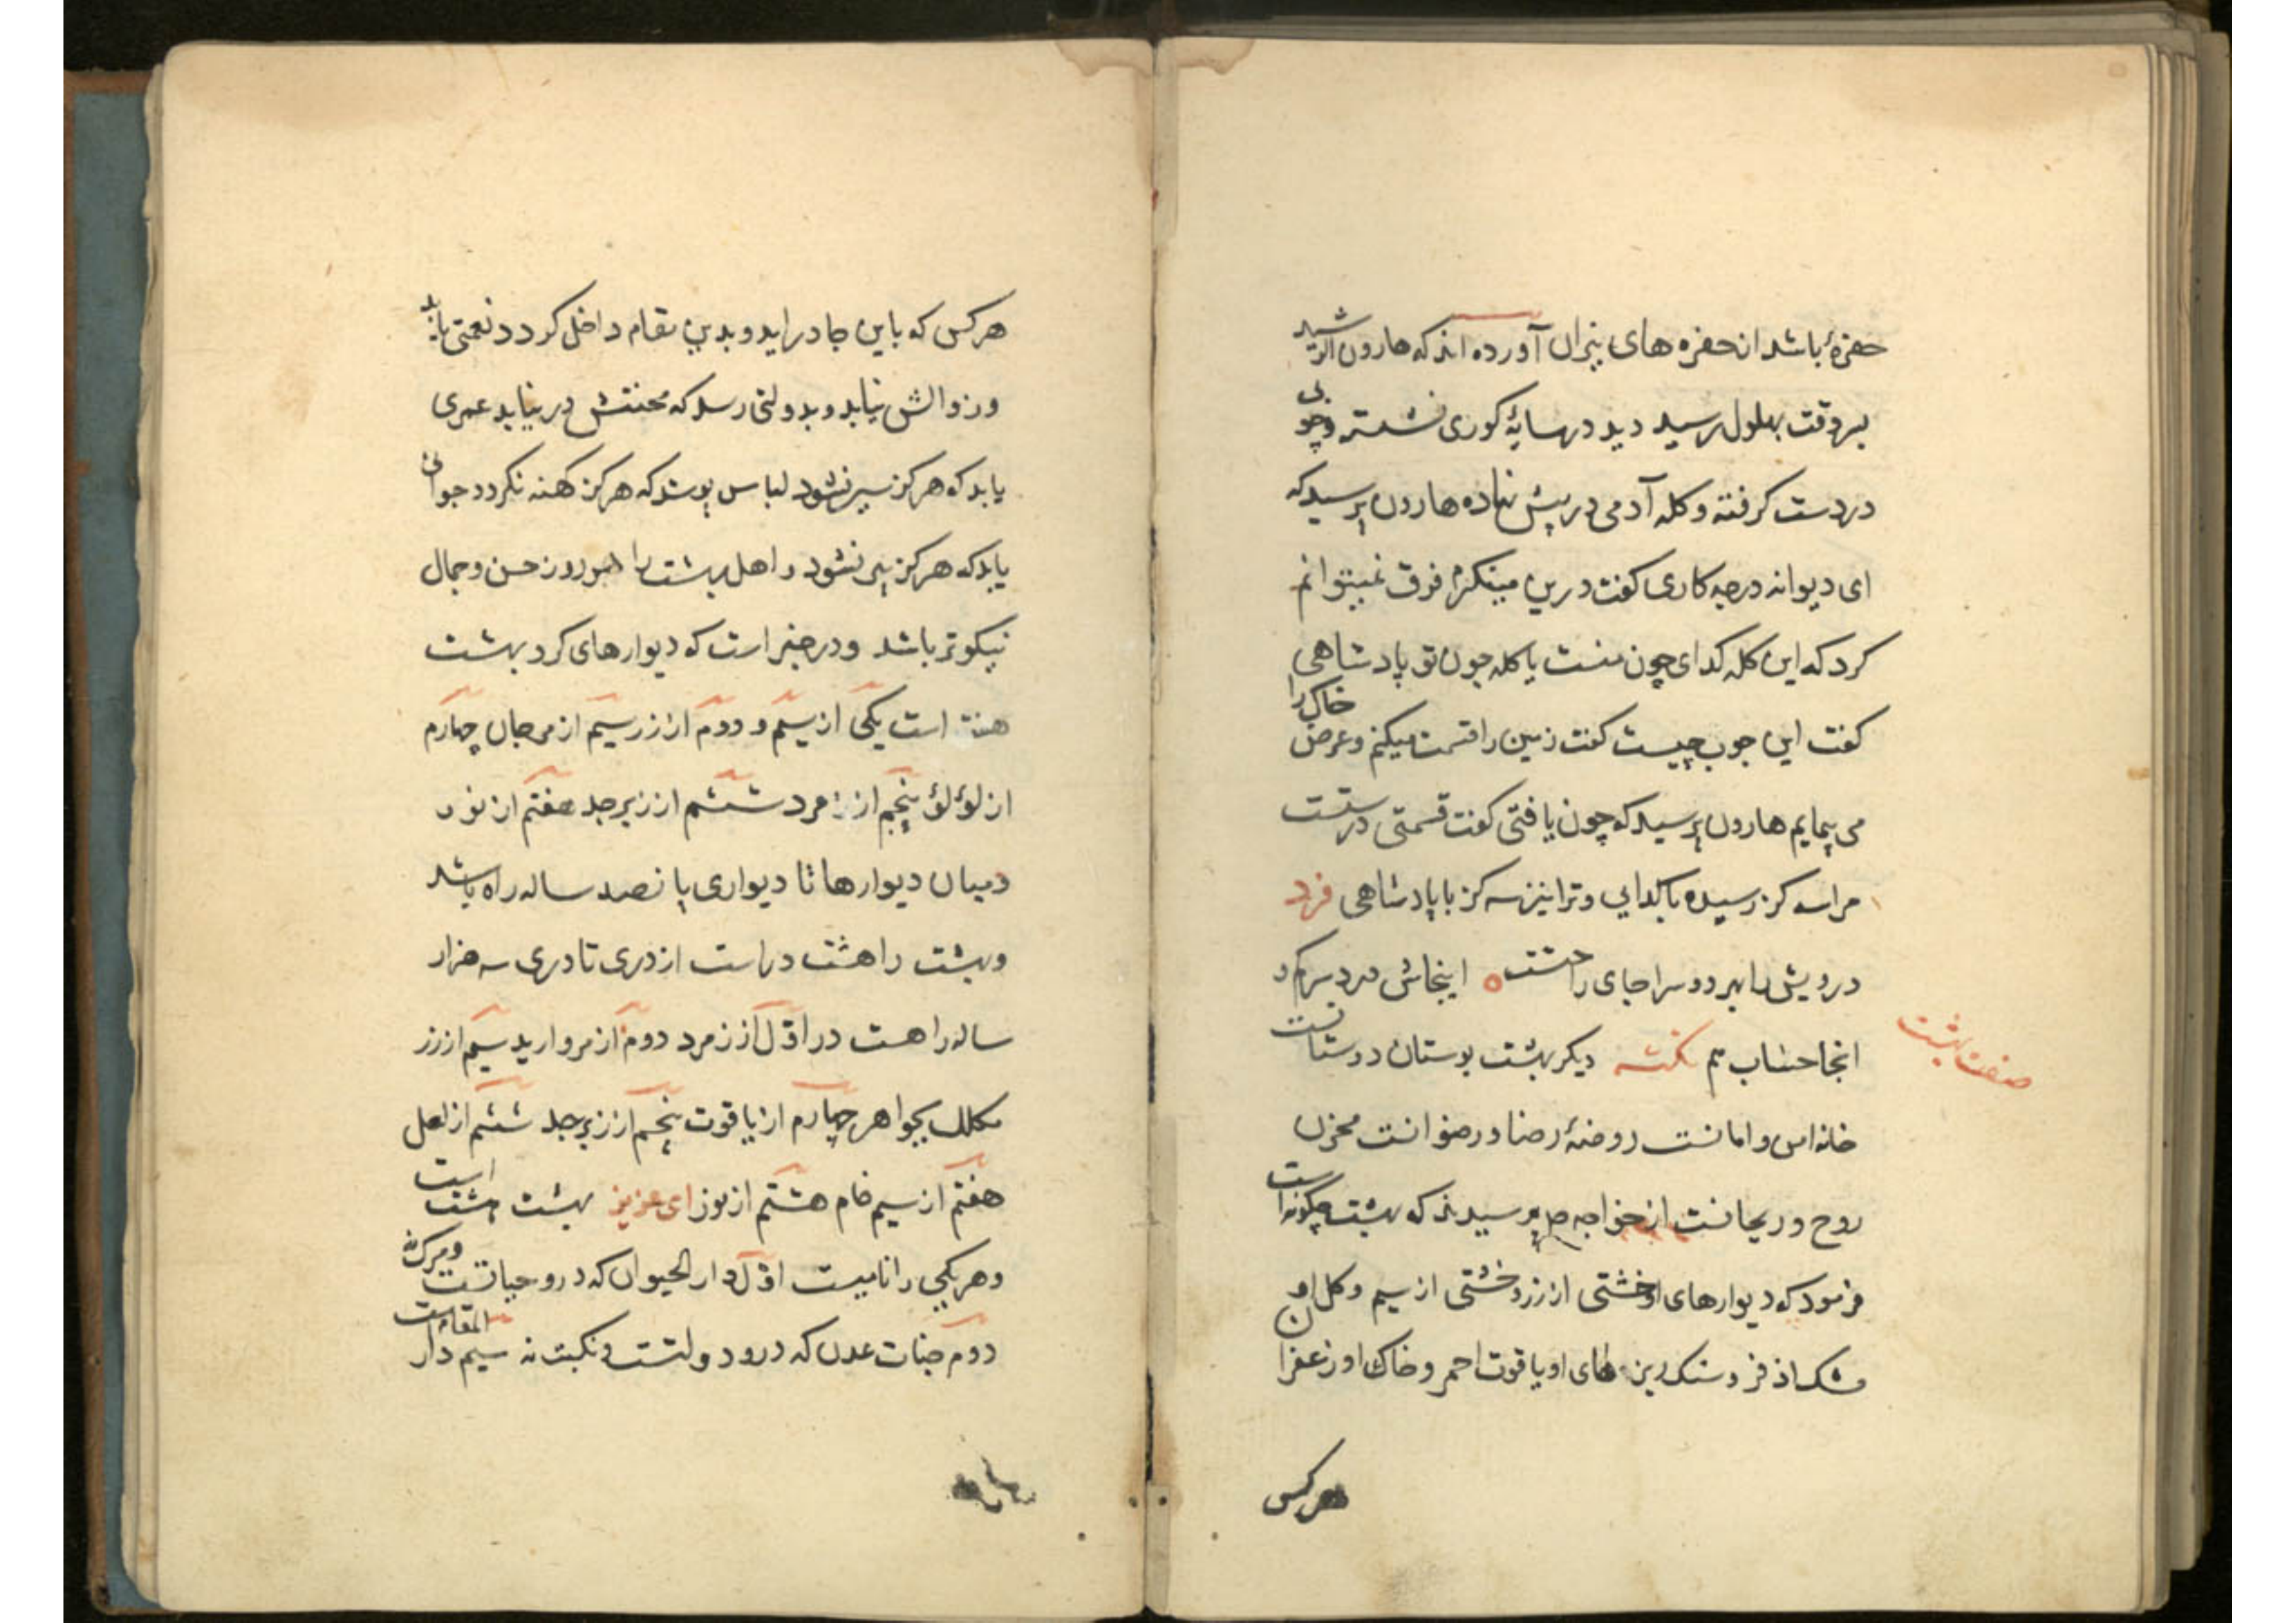 حفرۀ باشد از حفره های نیران آورده اند که هارون الرشید
بروقت بهلول رسید دید در سایۀ کوری نشسته و چوبی
در دست کرفته و کله آدمی در پیش نهاده هارون پرسید که
ای دیوانه در چه کاری کفت درین مینکرم فرق نمیتوانم
کرد که این کله کدای چون منست یا کله چون تو پادشاهی
کفت این چوب چیست کفت زمین را قسمت میکنم و عرض خاک را
می پیمایم هارون پرسید که چون یافتی کفت قسمتی درستست
مرا سه کز رسیده با کدایی و ترا نیز سه کز با پادشاهی فرد
درویش را بهر دو سرا جای راحتست اینجاش درد سر
انجا حساب هم نکته دیکر بهشت بوستان دوستانست
صفت بهشت
خانه امن و امانست روضۀ رضا و رضوانست مخزن
روح و ریحانست از خواجه صلم پرسیدند که بهشت چکونه است
فرمود که دیوارهای او خشتی از زر و خشتی از سیم و کل او
مشک اذفر و سنک ریزه های او یاقوت احمر و خاک او زعفران
هر کس
هر کس که باین جا دراید و بدین مقام داخل کردد نعمتی یابد
و زوالش نیابد و بدولتی رسد که محنتش در نیابد عمری
یابد که هرکز سیر نشود لباس پوشد که هرکز کهنه نکردد جوانی
یابد که هرکز پیر نشود و اهل بهشت را هر روز حسن و جمال
نیکوتر باشد و در خبر است که دیوارهای کرد بهشت
هفت است یکی از سیم و دوم از زر سیم از مرجان چهارم
از لؤلؤ پنجم از زمرد ششم از زبرجد هفتم از نور
میان دیوارها تا دیواری پانصد ساله راه باشد
و بهشت را هشت در است از دری تا دری سه هزار
ساله راهست در اول از زمرد دوم از مروارید سیم از زر
مکلل بجواهر چهارم از یاقوت پنجم از زبرجد ششم از لعل
هفتم از سیم خام هشتم از نور ای عزیز بهشت هشت است
و هر یکی را نامیست اول دار الحیوان که درو حیاتست و مرک نه
دوم جنات عدن که درو دولتست و نکبت نه سیم دار المقامست